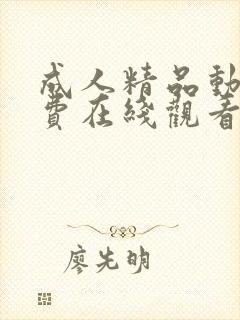 成人精品動
費在綫觀看
廖先明